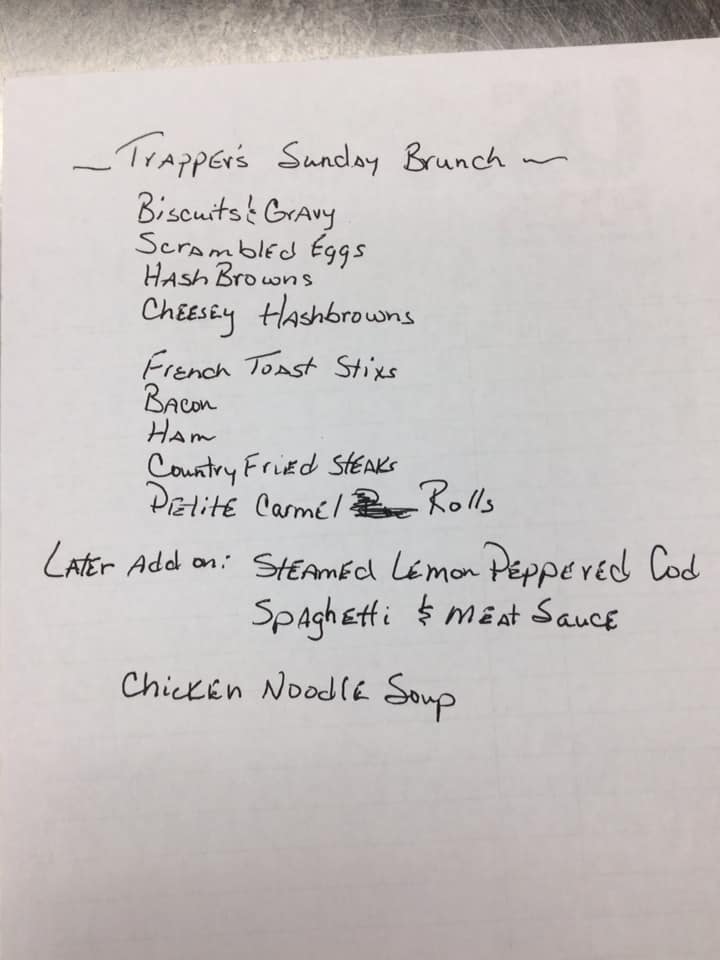 ~ Trapper's Sunday Brunch ~
Biscuits & Gravy
Scrambled Eggs
Hash Browns
Cheesey Hashbrowns
French Toast Stixs
Bacon
Ham
Country Fried Steaks
Petite Carmel Rolls
Later Add on: Steamed Lemon Peppered Cod
Spaghetti & Meat Sauce
Chicken Noodle Soup